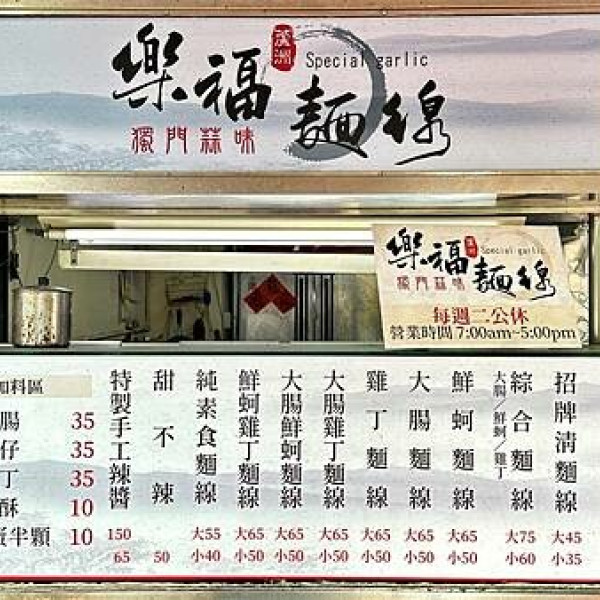 蘆洲
Special garlic
樂福麵線
獨門蒜味
蘆洲
Special garlic
樂福麵線
獨門蒜味
每週二公休
營業時間 7:00am~5:00pm
招牌清麵線 大45 小35
綜合麵線 大腸/鮮蚵/雞丁 大75 小60
鮮蚵麵線 大65 小50
大腸麵線 大65 小50
雞丁麵線 大65 小50
大腸雞丁麵線 大65 小50
大腸鮮蚵麵線 大65 小50
鮮蚵雞丁麵線 大65 小50
純素食麵線 大55 小40
甜不辣 50
特製手工辣醬 150 65
加料區
腸 35
仔 35
丁 35
酥 10
蛋半顆 10